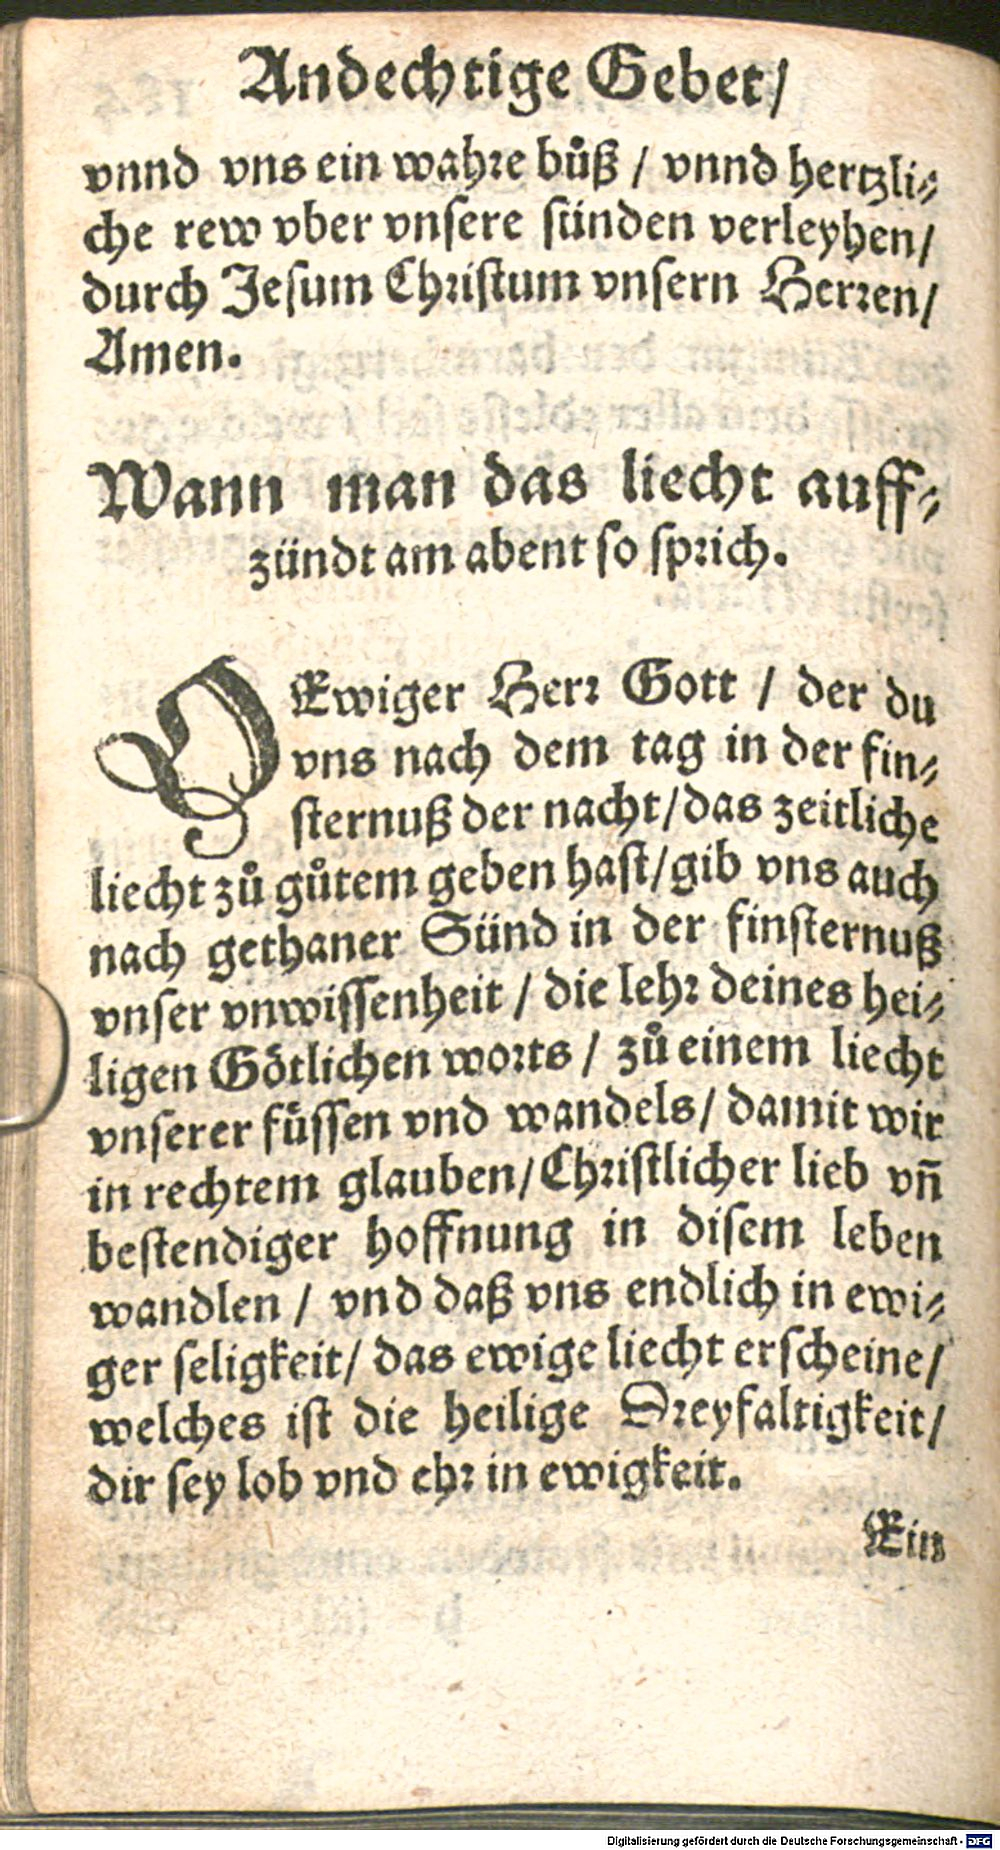 Andechtige Gebet/
vnnd vns ein wahre bůß / vnnd hertzli⸗
che rew vber vnsere sünden verleyhen/
durch Jesum Christum vnsern Herren/
Amen.
Wann man das liecht auff⸗
zündt am abent so sprich.
O Ewiger Herr Gott / der du
vns nach dem tag in der fin⸗
sternuß der nacht/das zeitliche
liecht zů gůtem geben hast/gib vns auch
nach gethaner Sünd in der finsternuß
vnser vnwissenheit / die lehr deines hei⸗
ligen Götlichen worts / zů einem liecht
vnserer füssen vnd wandels/ damit wir
in rechtem glauben/Christlicher lieb vñ
bestendiger hoffnung in disem leben
wandlen / vnd daß vns endlich in ewi⸗
ger seligkeit/ das ewige liecht erscheine/
welches ist die heilige Dreyfaltigkeit/
dir sey lob vnd ehr in ewigkeit.
Ein
Digitalisierung gefördert durch die Deutsche Forschungsgemeinschaft - DFG